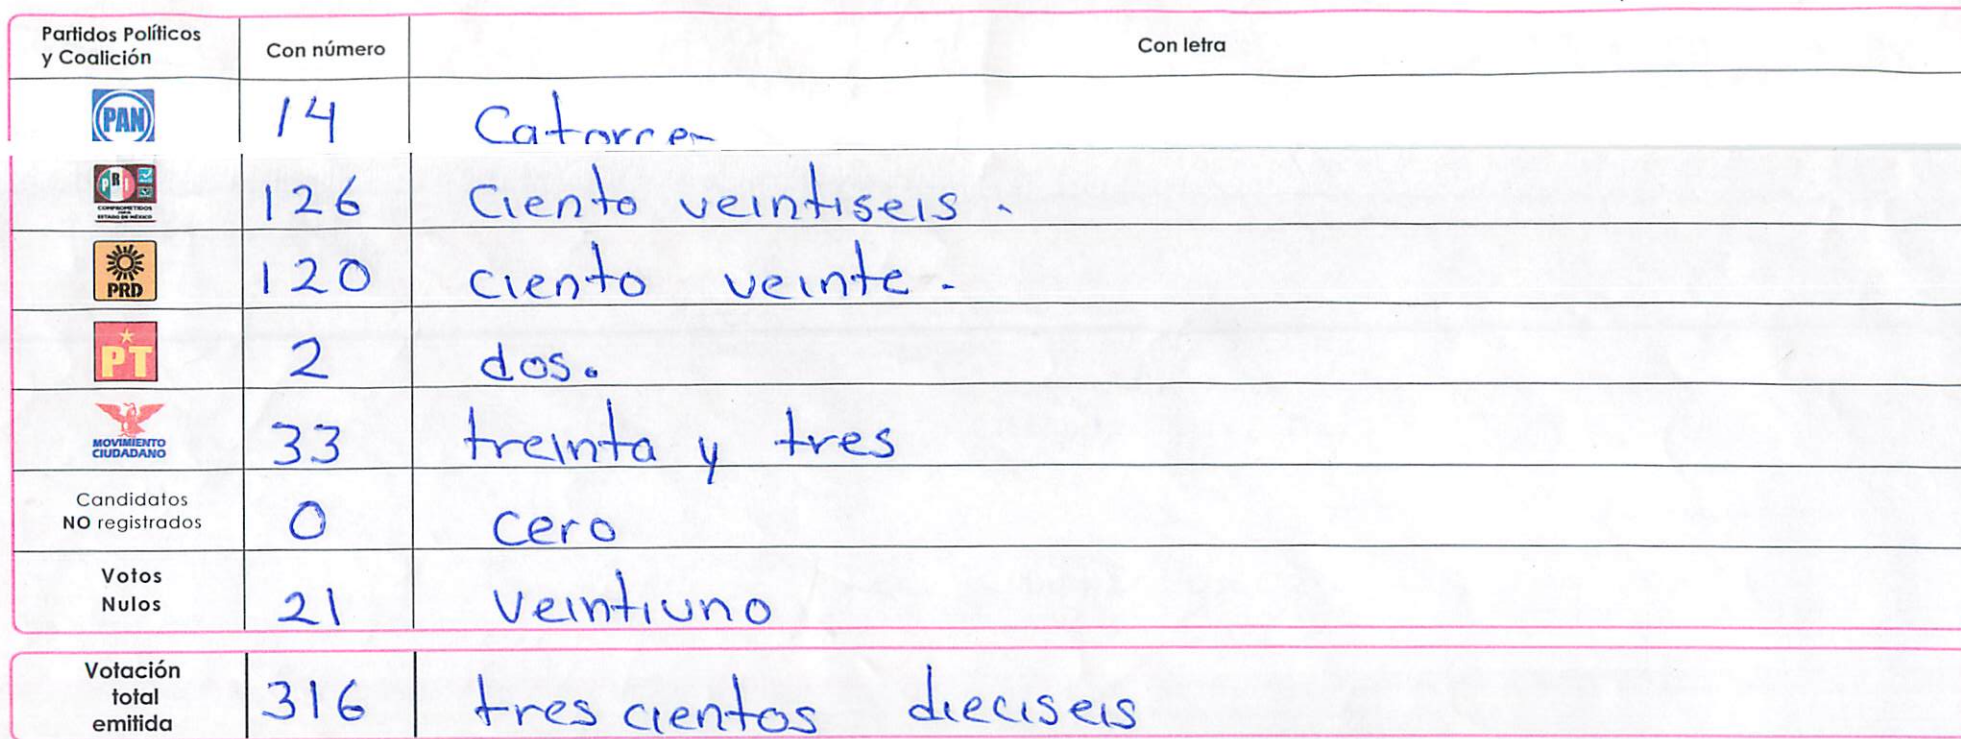 Partidos Políticos y Coalición Con número Con letra
PAN 14 Catorce
PRI COMPROMETIDOS ESTADO DE MÉXICO 126 Ciento veintiseis.
PRD 120 ciento veinte.
PT 2 dos.
MOVIMIENTO CIUDADANO 33 treinta y tres
Candidatos NO registrados 0 cero
Votos Nulos 21 Veintiuno
Votación total emitida 316 tres cientos dieciseis